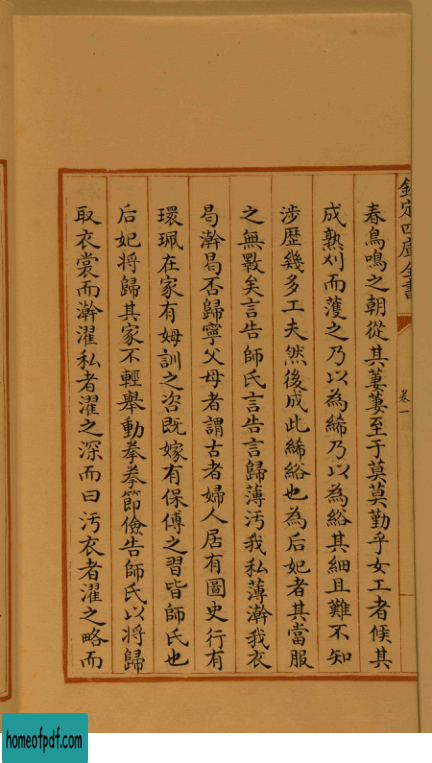 欽定四庫全書
卷一
春鳥鳴之朝從其萋萋至于莫莫勤乎女工者候其
成熟刈而蒦之乃以為絺乃以為綌其細且難不知
涉歷幾多工夫然後成此絺綌也為后妃者其當服
之無斁矣言告師氏言告言歸薄汚我私薄澣我衣
曷澣曷否歸寧父母者謂古者婦人居有圖史行有
環珮在家有姆訓之咨既嫁有保傅之習皆師氏也
后妃將歸其家不輕舉動拳拳節儉告師氏以將歸
取衣裳而澣濯私者濯之深而曰汚衣者濯之略而
homeofpdf.com